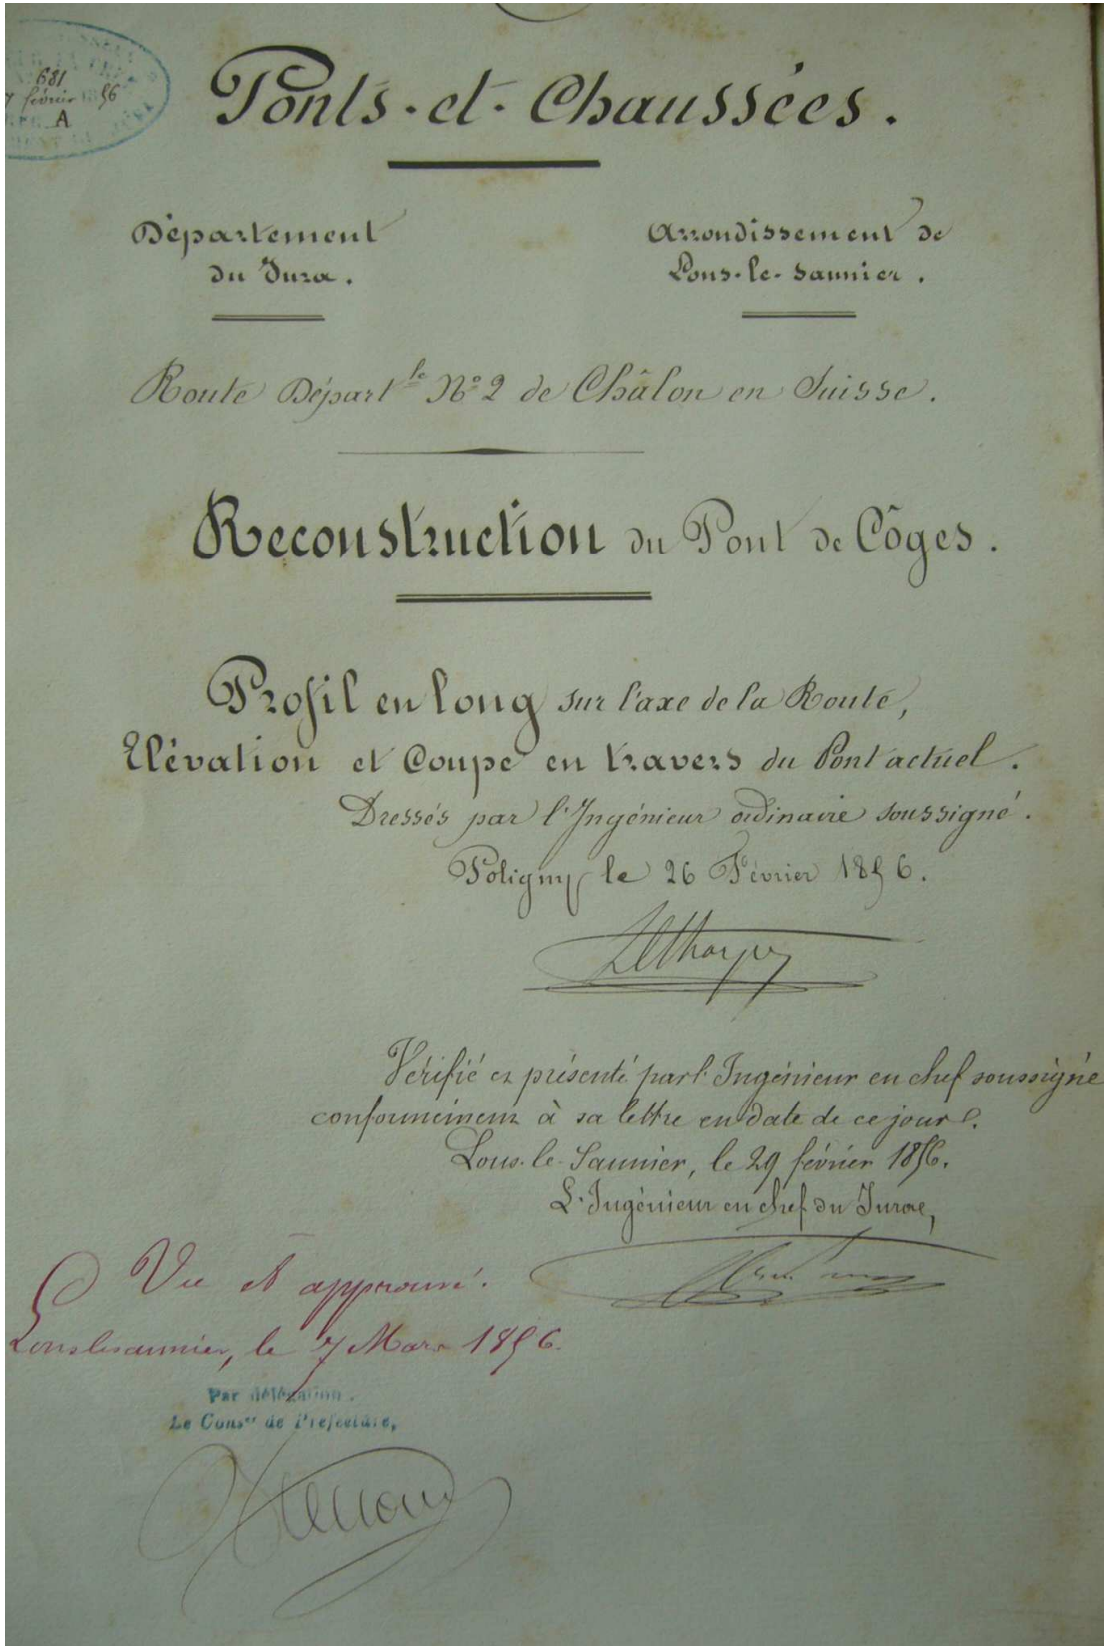 681
7 février 1856
A
Ponts-et-Chaussées.
Département
du Jura.
Arrondissement de
Lons-le-Saunier.
Route Départ.le N.o 2 de Châlon en Suisse.
Reconstruction du Pont de Côges.
Profil en long sur l'axe de la Route,
Elévation et Coupe en travers du Pont actuel.
Dressés par l'Ingénieur ordinaire soussigné.
Poligny le 26 Février 1856.
Vérifié et présenté par l'Ingénieur en chef soussigné
conformément à sa lettre en date de ce jour.
Lons-le-Saunier, le 29 février 1856.
L'Ingénieur en chef du Jura,
Vu et approuvé.
Lonslesaunier, le 7 Mars 1856.
Par délégation.
Le Cons.er de Préfecture,